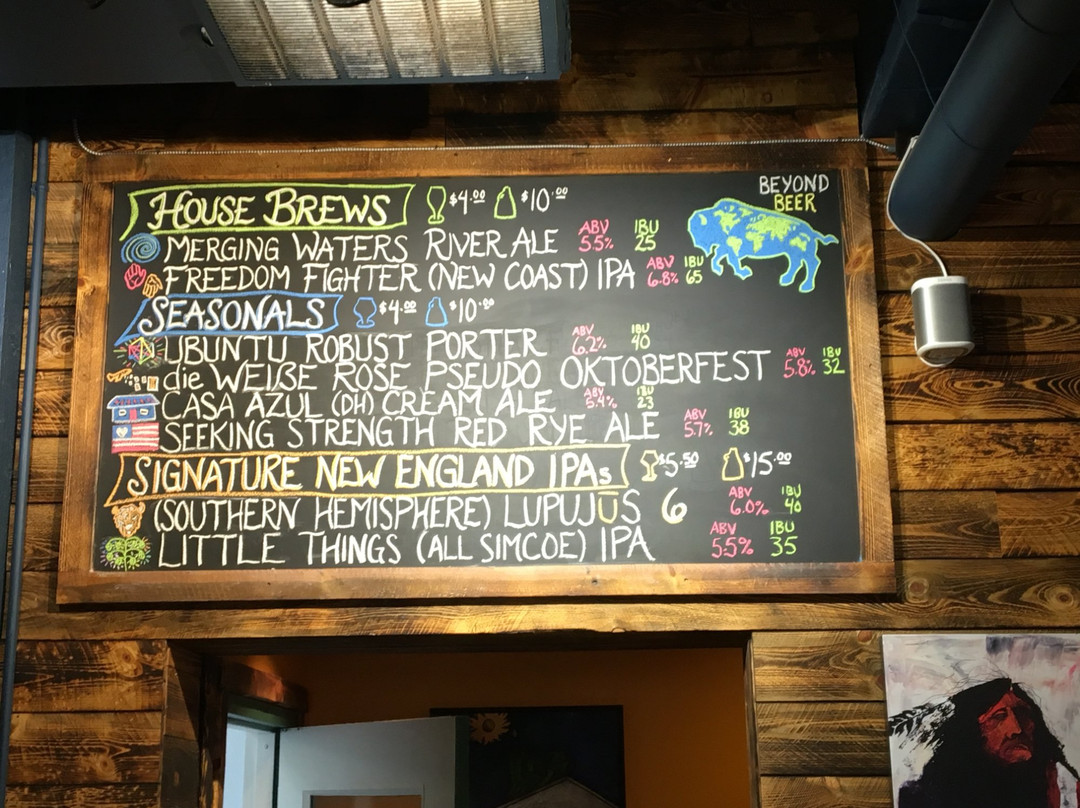 BEYOND
BEER
HOUSE BREWS $4.00 $10.00
MERGING WATERS RIVER ALE ABV 5.5% IBU 25
FREEDOM FIGHTER (NEW COAST) IPA ABV 6.8% IBU 65
SEASONALS $4.00 $10.00
UBUNTU ROBUST PORTER ABV 6.2% IBU 40
die WEIßE ROSE PSEUDO OKTOBERFEST ABV 5.8% IBU 32
CASA AZUL (DH) CREAM ALE ABV 5.4% IBU 23
SEEKING STRENGTH RED RYE ALE ABV 5.7% IBU 38
SIGNATURE NEW ENGLAND IPAs $5.50 $15.00
(SOUTHERN HEMISPHERE) LUPUJŪS 6 ABV 6.0% IBU 40
LITTLE THINGS (ALL SIMCOE) IPA ABV 5.5% IBU 35